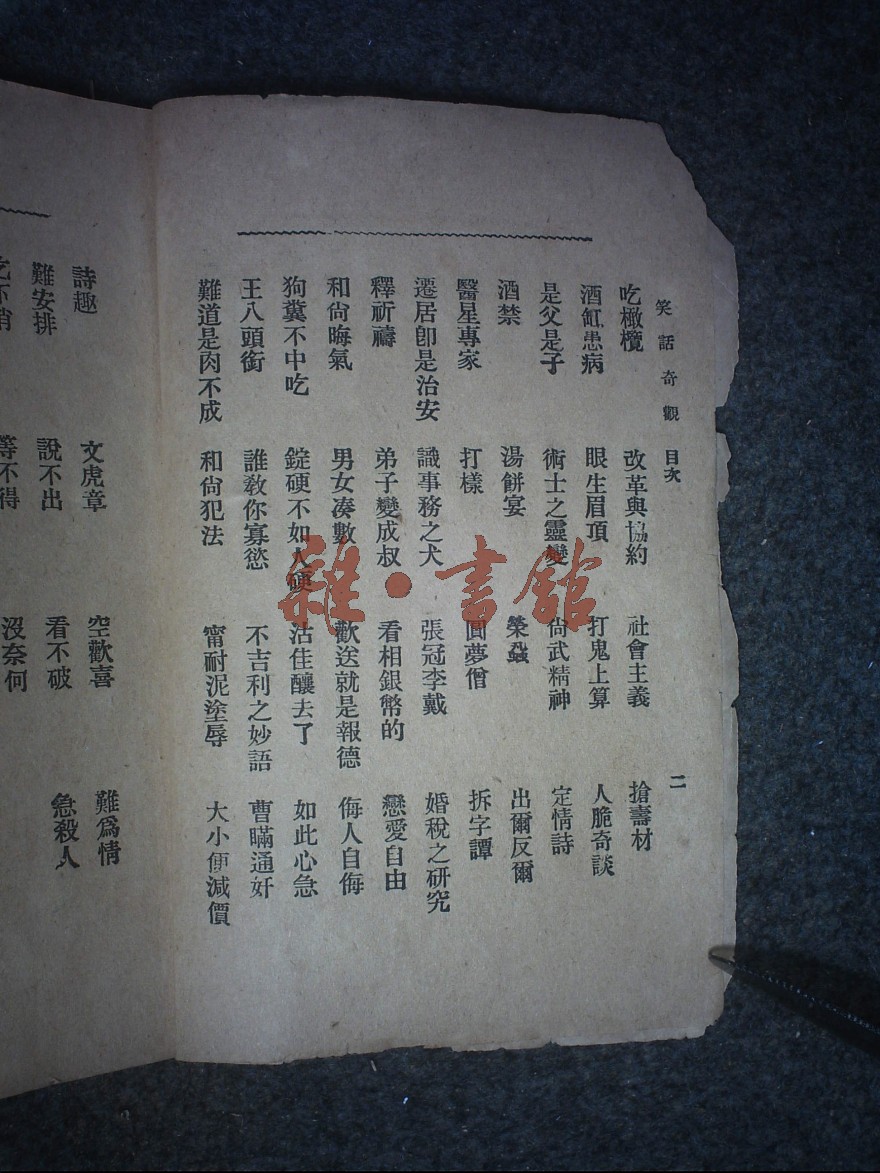 笑話奇觀 目次 二
吃橄欖 改革與協約 社會主義 搶壽材
酒缸患病 眼生眉頂 打鬼上算 人脆奇談
是父是子 術士之靈變 尙武精神 定情詩
酒禁 湯餅宴 榮發 出爾反爾
醫星專家 打樣 圓夢僧 拆字譚
遷居卽是治安 識事務之犬 張冠李戴 婚稅之研究
釋祈禱 弟子變成叔 看相銀幣的 戀愛自由
和尙晦氣 男女凑數 歡送就是報德 侮人自侮
狗糞不中吃 錠硬不如人硬 沽佳釀去了 如此心急
王八頭銜 誰敎你寡慾 不吉利之妙語 曹瞞通奸
難道是肉不成 和尙犯法 甯耐泥塗辱 大小便減價
詩趣 文虎章 空歡喜 難爲情
難安排 說不出 看不破 急殺人
吃不消 等不得 沒奈何
雜·書館